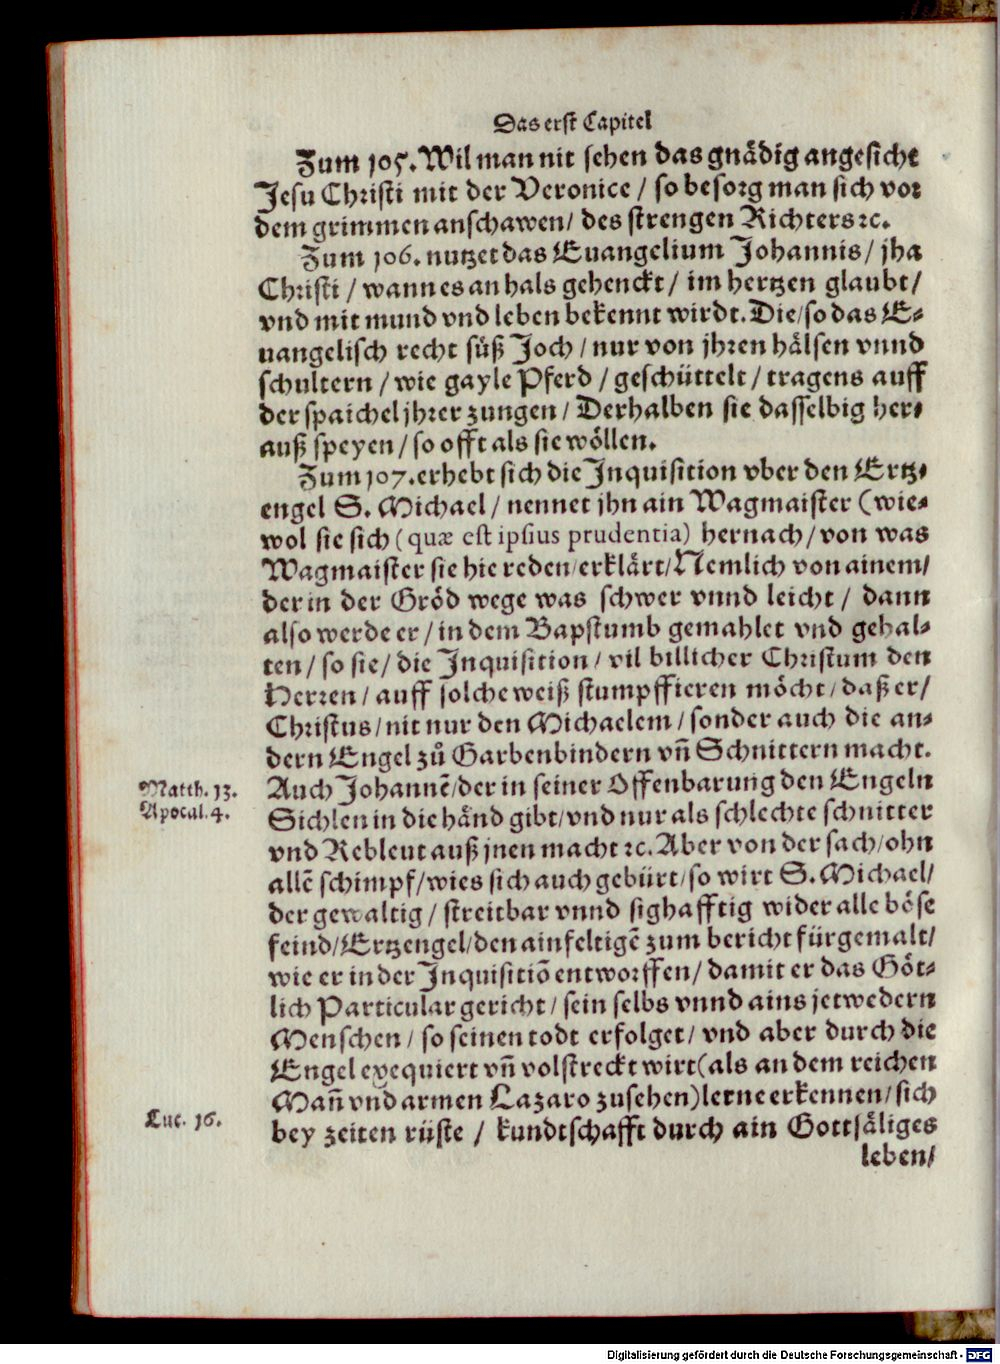 Das erst Capitel
Zum 105. Wil man nit sehen das gnädig angesicht
Jesu Christi mit der Veronice / so besorg man sich vor
dem grimmen anschawen / des strengen Richters ꝛc.
Zum 106. nutzet das Euangelium Johannis / jha
Christi / wann es an hals gehenckt / im hertzen glaubt /
vnd mit mund vnd leben bekennt wirdt. Die / so das E⸗
uangelisch recht süß Joch / nur von jhren hälsen vnnd
schultern / wie gayle Pferd / geschüttelt / tragens auff
der spaichel jhrer zungen / Derhalben sie dasselbig her⸗
auß speyen / so offt als sie wöllen.
Zum 107. erhebt sich die Inquisition vber den Ertz⸗
engel S. Michael / nennet jhn ain Wagmaister (wie⸗
wol sie sich (quæ est ipsius prudentia) hernach / von was
Wagmaister sie hie reden / erklärt / Nemlich von ainem /
der in der Gröd wege was schwer vnnd leicht / dann
also werde er / in dem Bapstumb gemahlet vnd gehal⸗
ten / so sie / die Inquisition / vil billicher Christum den
Herren / auff solche weiß stumpffieren möcht / daß er /
Christus / nit nur den Michaelem / sonder auch die an⸗
dern Engel zů Garbenbindern vñ Schnittern macht.
Matth. 13.
Auch Johannẽ / der in seiner Offenbarung den Engeln
Apocal. 4.
Sichlen in die händ gibt / vnd nur als schlechte schnitter
vnd Rebleut auß jnen macht ꝛc. Aber von der sach / ohn
allẽ schimpf / wies sich auch gebürt / so wirt S. Michael /
der gewaltig / streitbar vnnd sighafftig wider alle böse
feind / Ertzengel / den ainfeltigẽ zum bericht fürgemalt /
wie er in der Inquisitiõ entworffen / damit er das Göt⸗
lich Particular gericht / sein selbs vnnd ains jetwedern
Menschen / so seinen todt erfolget / vnd aber durch die
Engel exequiert vñ volstreckt wirt (als an dem reichen
Mañ vnd armen Lazaro zusehen) lerne erkennen / sich
Luc. 16.
bey zeiten rüste / kundtschafft durch ain Gottsäliges
leben /
Digitalisierung gefördert durch die Deutsche Forschungsgemeinschaft - DFG